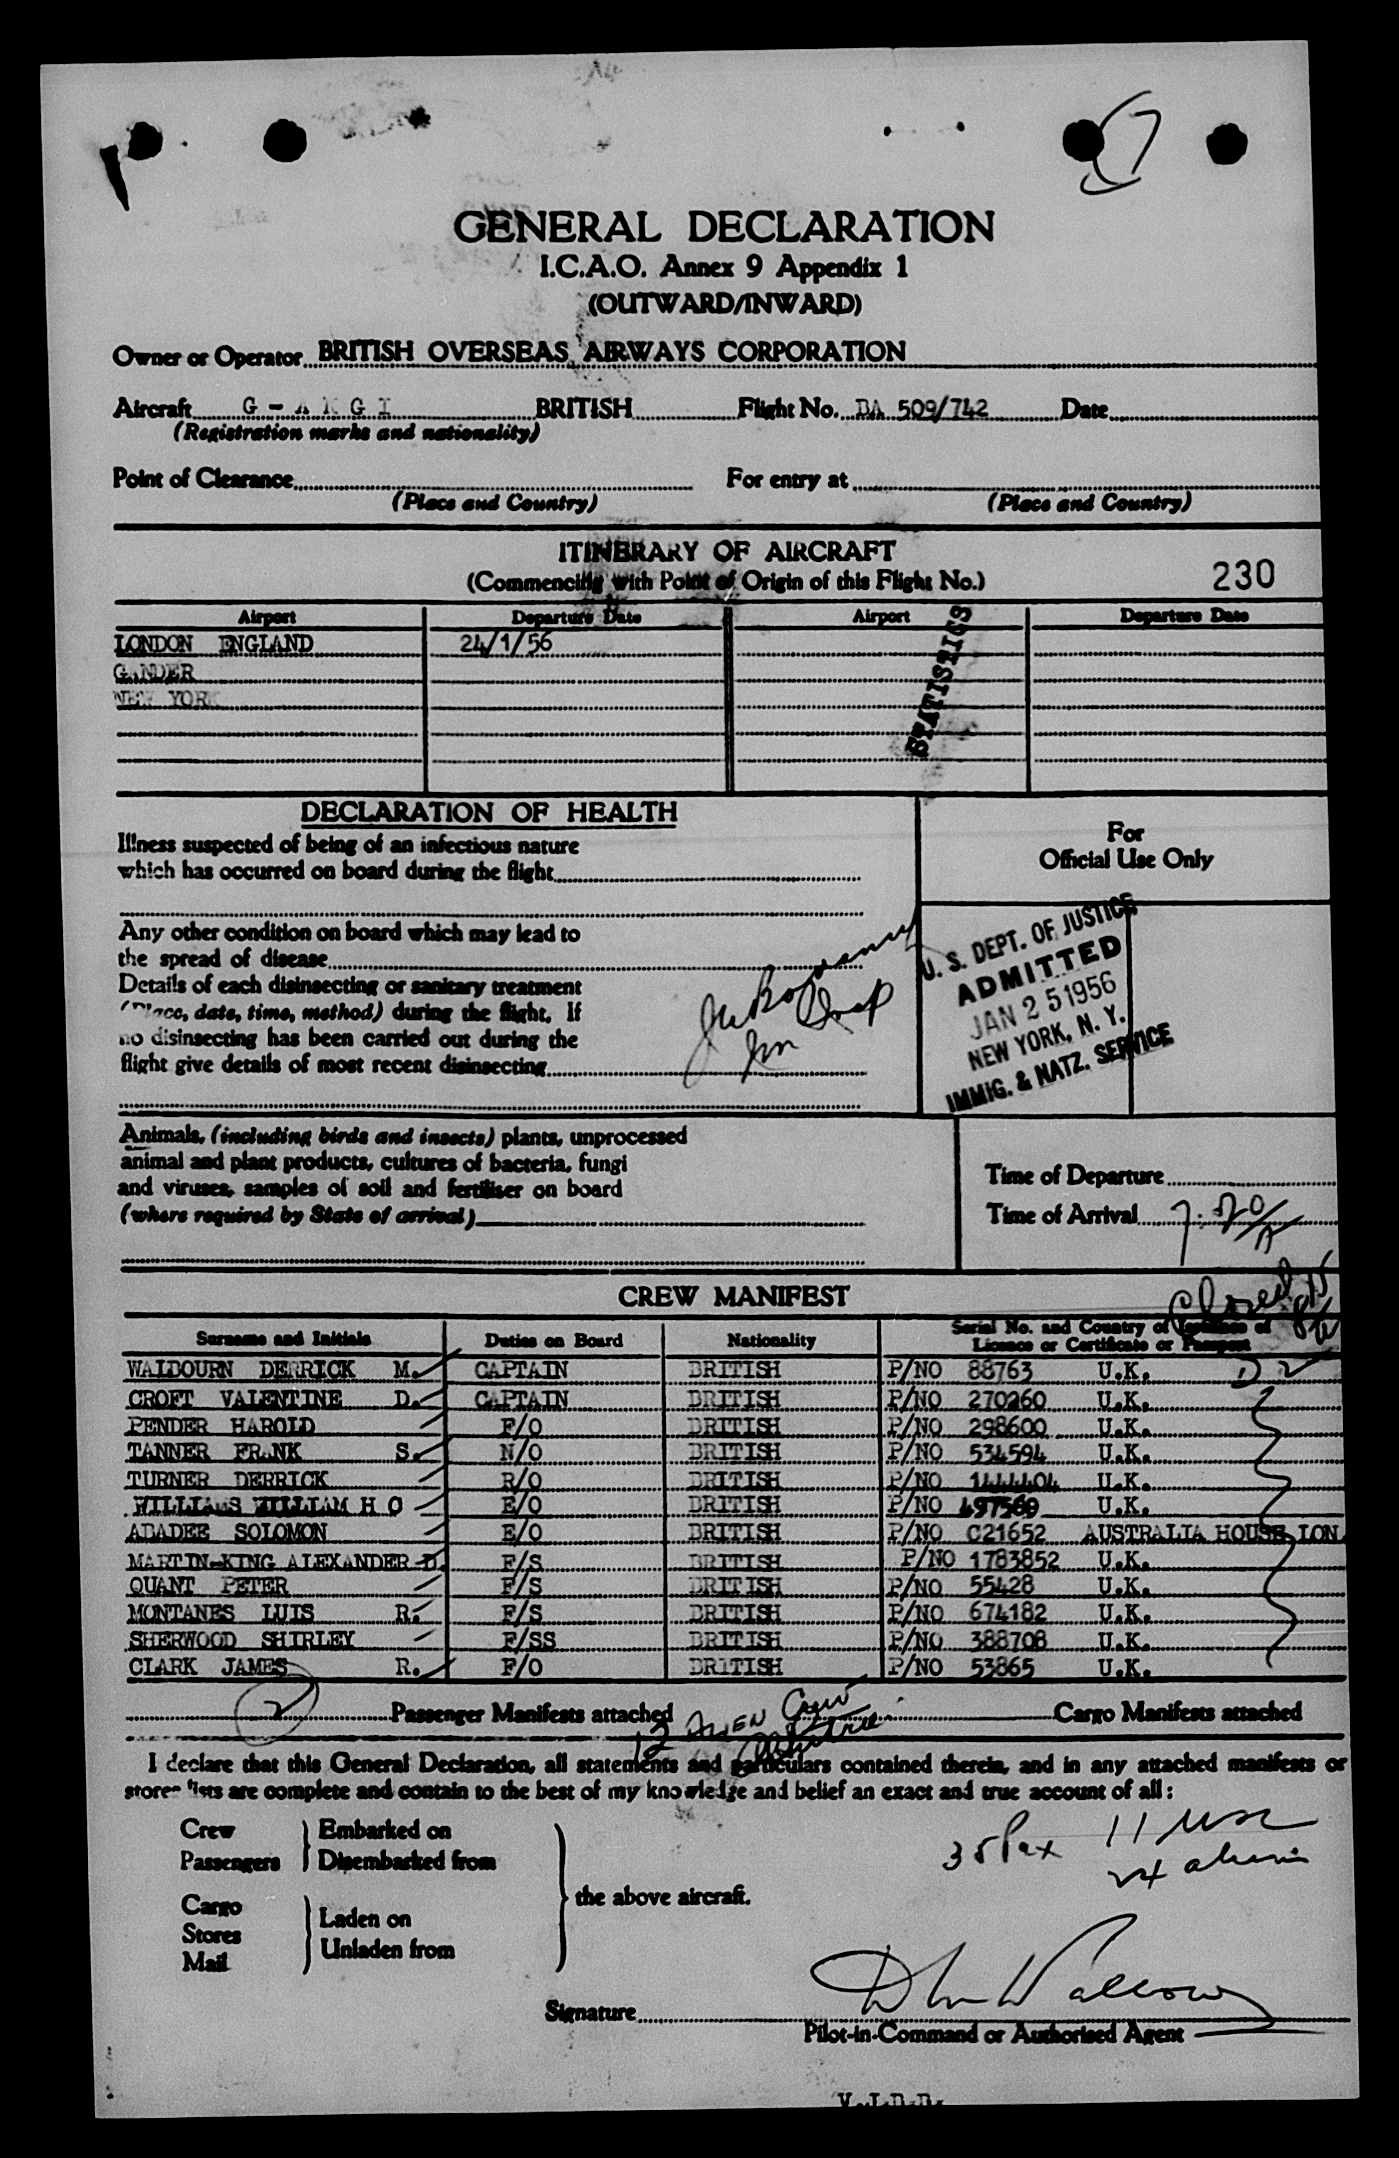 GENERAL DECLARATION
I.C.A.O. Annex 9 Appendix 1
(OUTWARD/INWARD)
Owner or Operator BRITISH OVERSEAS AIRWAYS CORPORATION
Aircraft G - A N G I BRITISH Flight No. BA 509/742 Date
(Registration marks and nationality)
Point of Clearance For entry at
(Place and Country) (Place and Country)
ITINERARY OF AIRCRAFT
(Commencing with Point of Origin of this Flight No.) 230
Airport Departure Date Airport Departure Date
LONDON ENGLAND 24/1/56
GANDER
NEW YORK
STATISTICS
DECLARATION OF HEALTH
Illness suspected of being of an infectious nature
which has occurred on board during the flight
For
Official Use Only
Any other condition on board which may lead to
the spread of disease
Details of each disinsecting or sanitary treatment
(Place, date, time, method) during the flight. If
no disinsecting has been carried out during the
flight give details of most recent disinsecting
U. S. DEPT. OF JUSTICE
ADMITTED
JAN 25 1956
NEW YORK, N. Y.
IMMIG. & NATZ. SERVICE
Animals, (including birds and insects) plants, unprocessed
animal and plant products, cultures of bacteria, fungi
and viruses, samples of soil and fertiliser on board
(where required by State of arrival)
Time of Departure
Time of Arrival 7:20/A
Closed
CREW MANIFEST
Surname and Initials Duties on Board Nationality Serial No. and Country of Issuance of
Licence or Certificate or Passport
WALDOURN DERRICK M. CAPTAIN BRITISH P/NO 88763 U.K. D2
CROFT VALENTINE D. CAPTAIN BRITISH P/NO 270260 U.K.
PENDER HAROLD F/O BRITISH P/NO 298600 U.K.
TANNER FRANK S. N/O BRITISH P/NO 534594 U.K.
TURNER DERRICK R/O BRITISH P/NO 1444404 U.K.
WILLIAMS WILLIAM H O E/O BRITISH P/NO 497560 U.K.
ABADEE SOLOMON E/O BRITISH P/NO C21652 AUSTRALIA HOUSE LON.
MARTIN-KING ALEXANDER D. F/S BRITISH P/NO 1783852 U.K.
QUANT PETER F/S BRITISH P/NO 55428 U.K.
MONTANES LUIS R. F/S BRITISH P/NO 674182 U.K.
SHERWOOD SHIRLEY F/SS BRITISH P/NO 388708 U.K.
CLARK JAMES R. F/O BRITISH P/NO 53865 U.K.
2 Passenger Manifests attached Cargo Manifests attached
12 Alien Crew
I declare that this General Declaration, all statements and particulars contained therein, and in any attached manifests or
stores lists are complete and contain to the best of my knowledge and belief an exact and true account of all:
Crew Embarked on
Passengers Disembarked from
35 Pax 11 USC
24 aliens
the above aircraft.
Cargo
Stores
Mail
Laden on
Unladen from
Signature
Pilot-in-Command or Authorised Agent